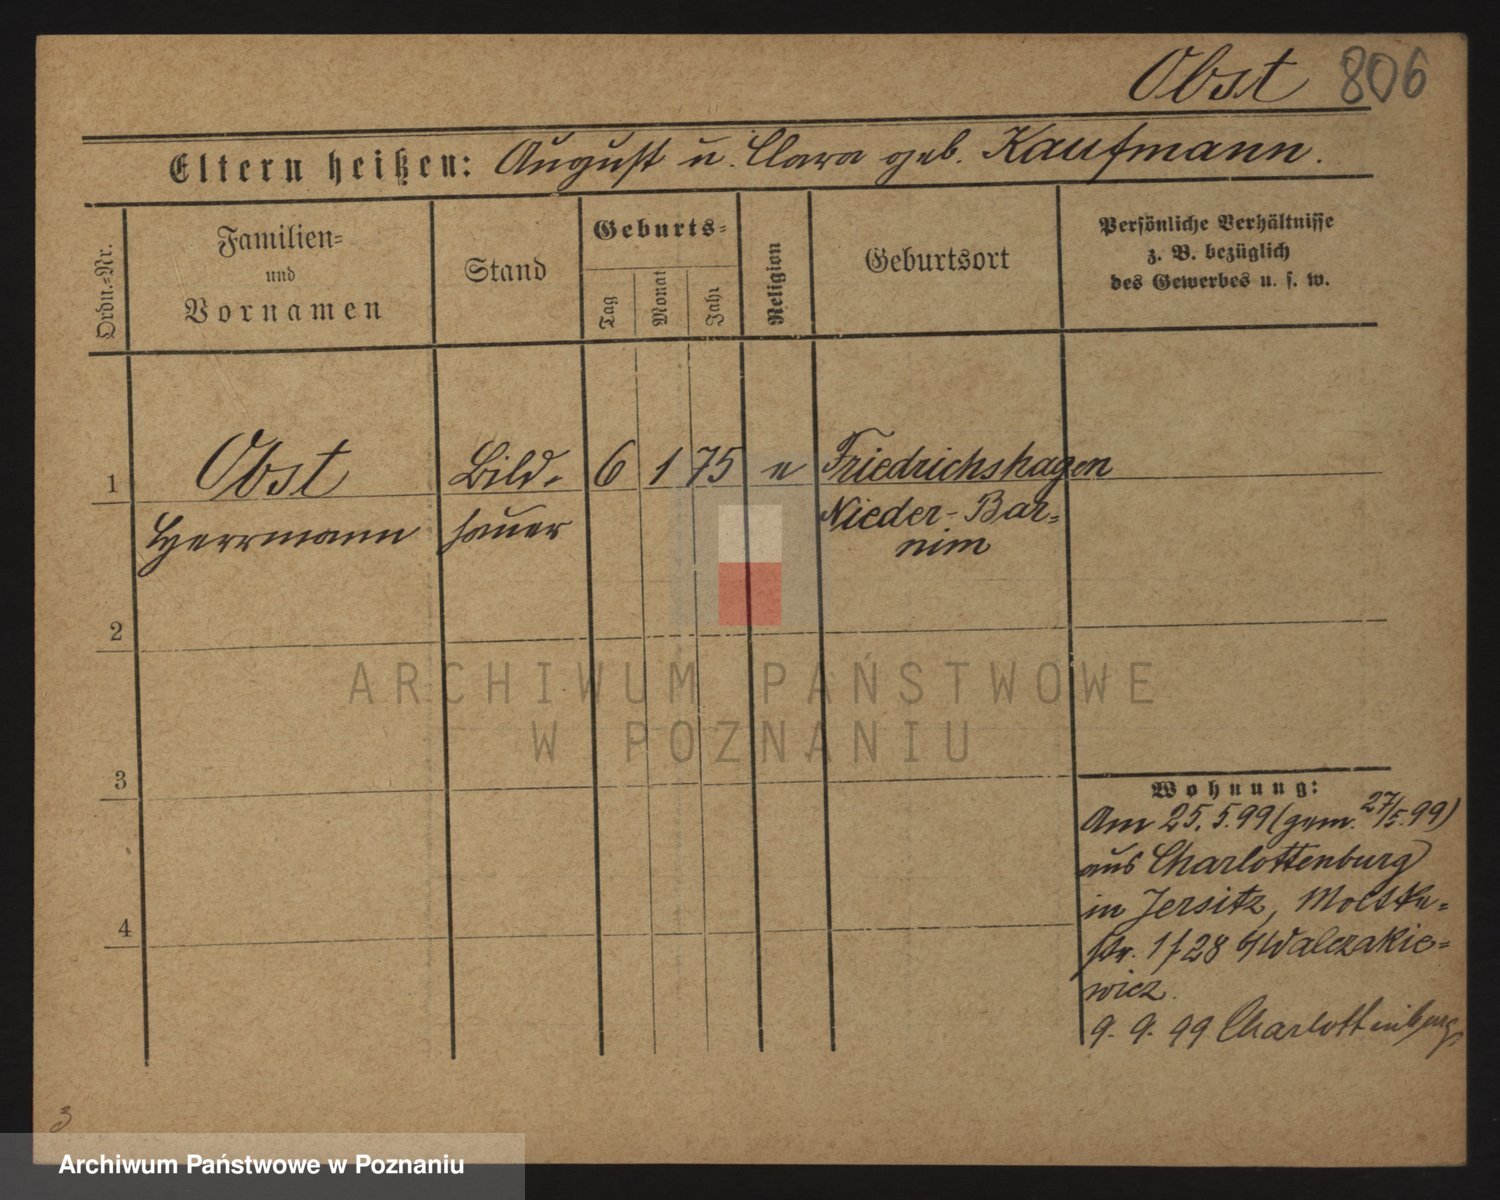 Obst 806
Eltern heißen: August u. Clara geb. Kaufmann.
Ordn.=Nr.
Familien=
und
Vornamen
Stand
Geburts=
Tag
Monat
Jahr
Religion
Geburtsort
Persönliche Verhältnisse
z. B. bezüglich
des Gewerbes u. s. w.
1 Obst Bild- 6 1 75 e Friedrichshagen
Herrmann hauer Nieder-Bar=
nim
2
3
4
Wohnung:
Am 25.5.99 (gem. 27/5.99)
aus Charlottenburg
in Jersitz, Moltke=
str. 17 28 Walczakie=
wicz.
9. 9. 99 Charlottenburg
3
ARCHIWUM PAŃSTWOWE
W POZNANIU
Archiwum Państwowe w Poznaniu